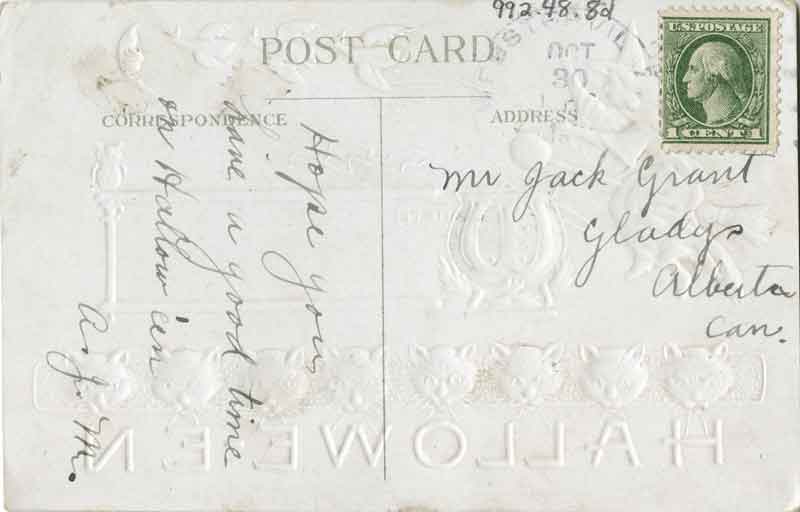 992.48.8d
POST CARD
OCT
30
U.S. POSTAGE
1 CENT 1
CORRESPONDENCE
ADDRESS
Hope you
have a good time
on Hallow'een
A. J. M.
Mr Jack Grant
Gladys
Alberta
Can.
HALLOWE'EN